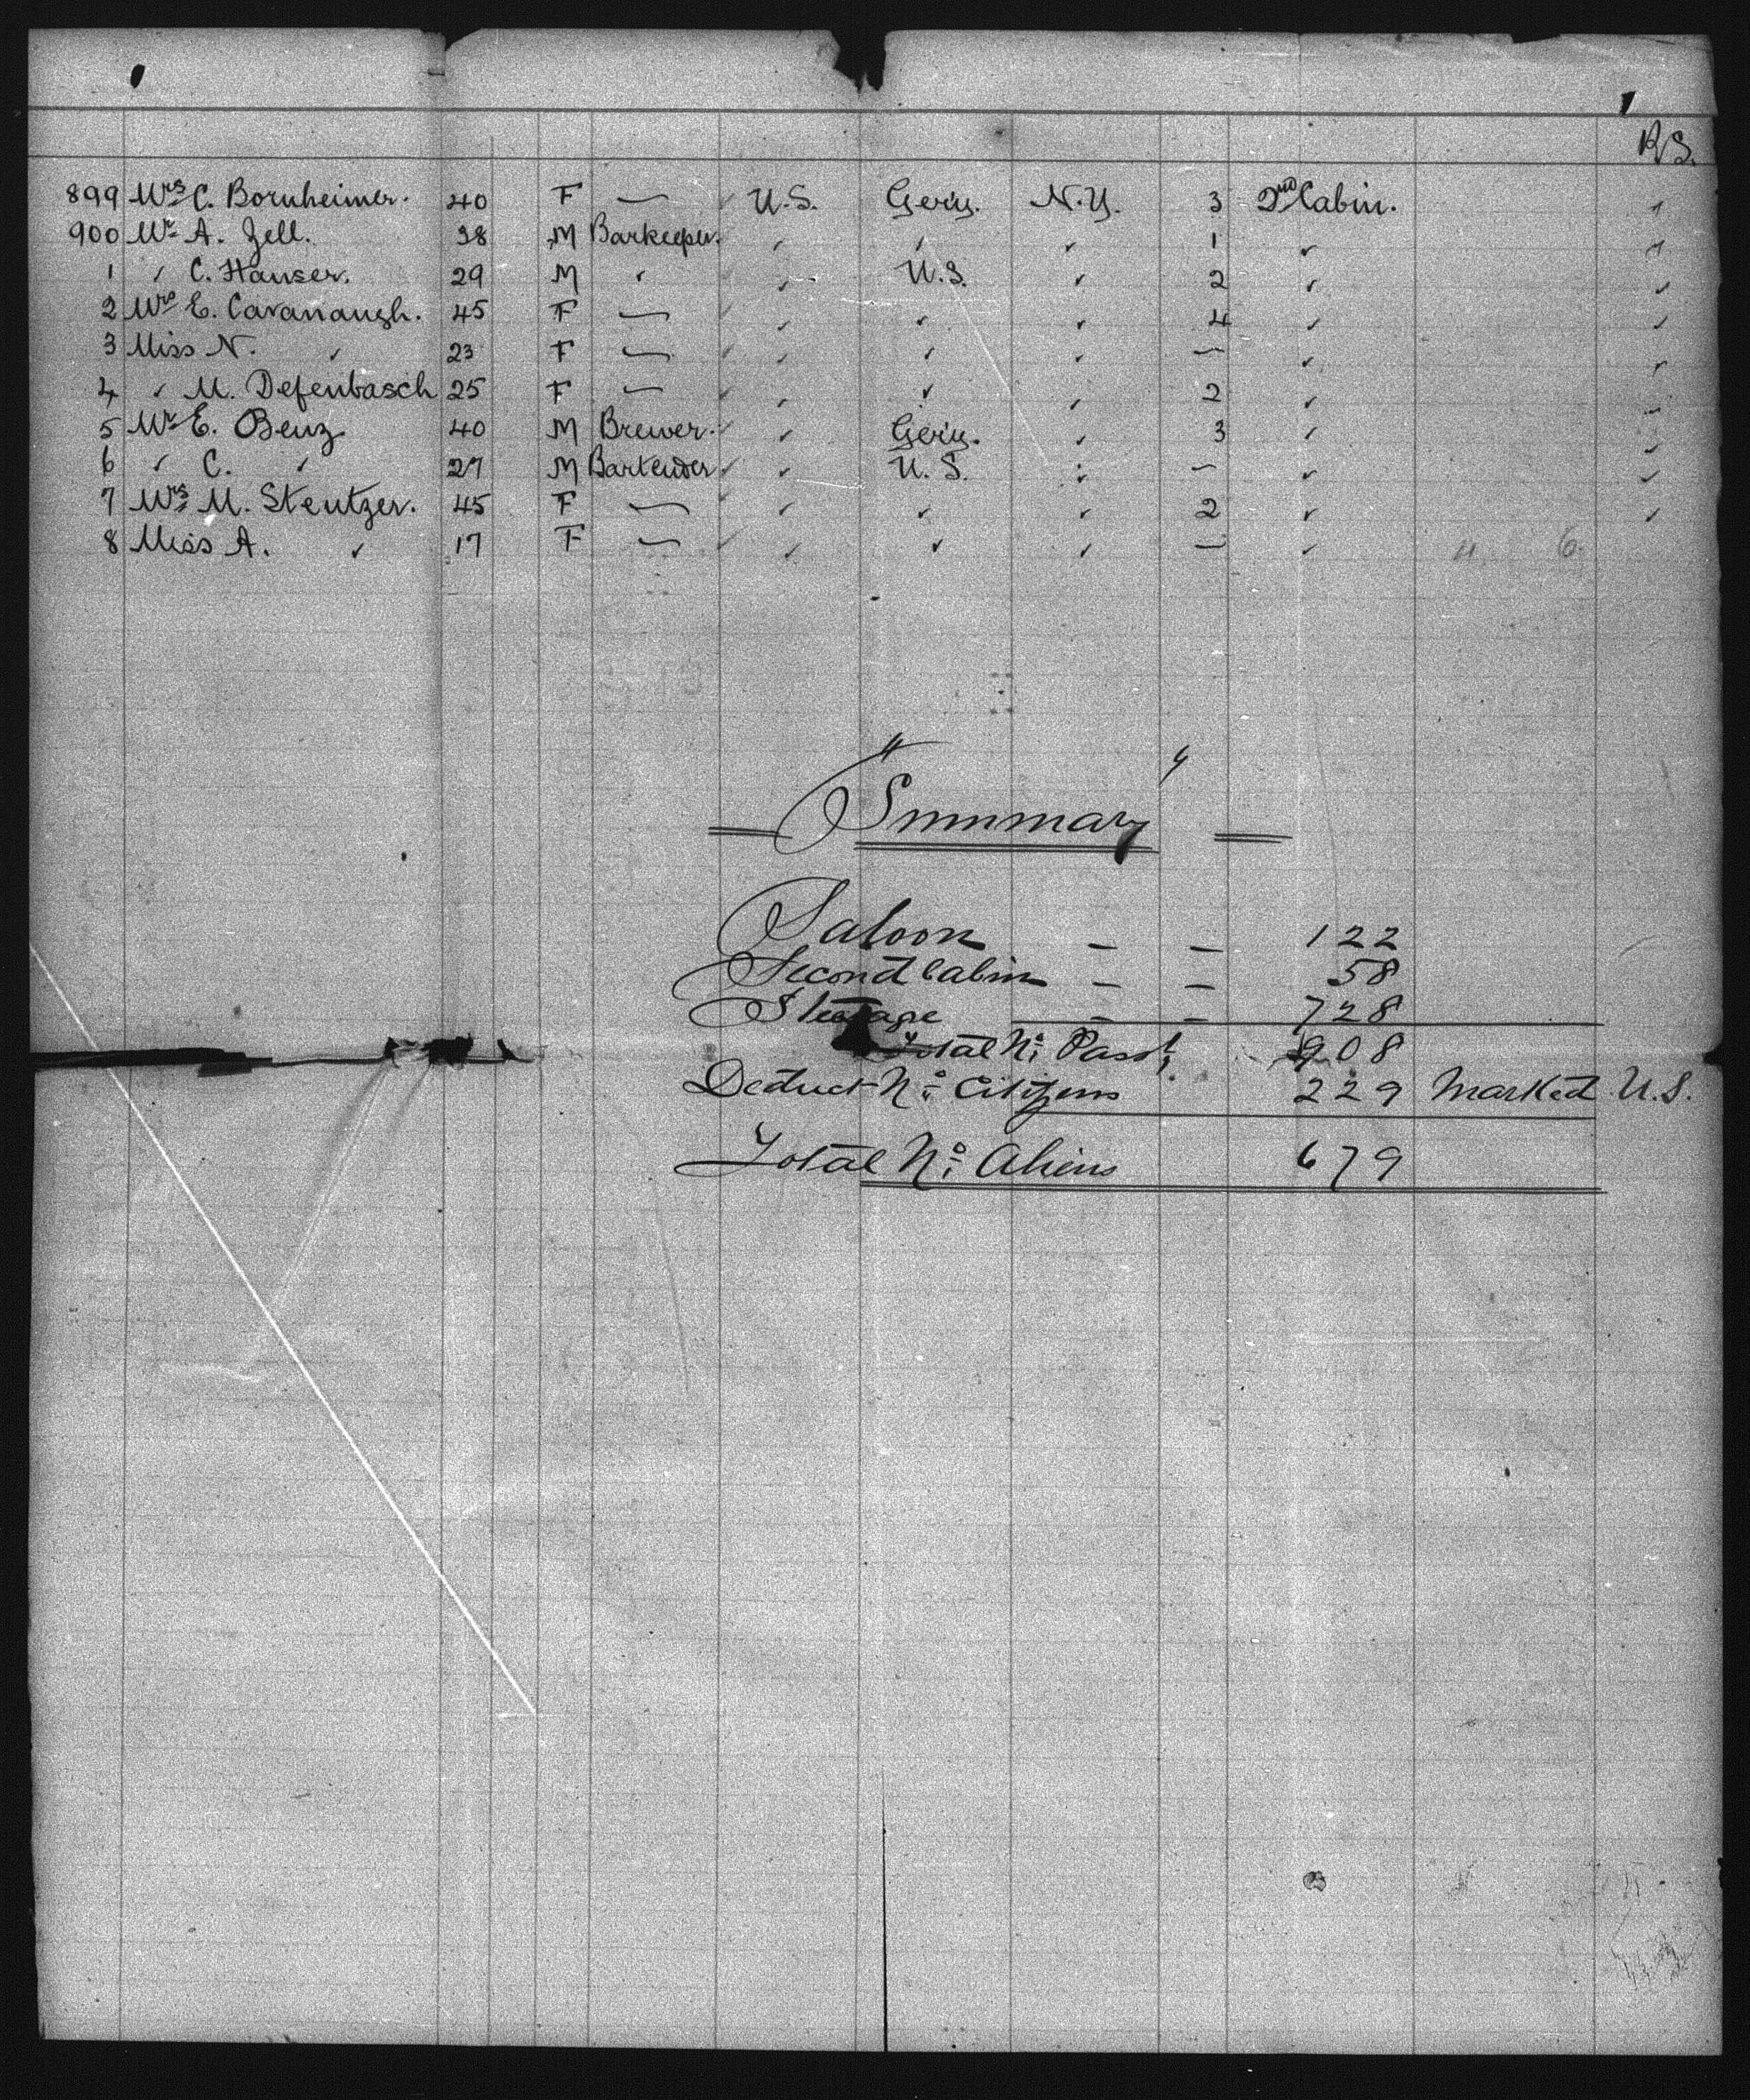 B/S.
899 Mrs C. Bornheimer. 40 F — U.S. Gery. N.Y. 3 2nd Cabin.
900 Mr A. Zell. 38 M Barkeeper. " " " 1 "
1 " C. Hauser. 29 M " " U.S. " 2 "
2 Mrs E. Cavanaugh. 45 F — " " " 4 "
3 Miss N. " 23 F — " " " — "
4 " M. Defenbasch 25 F — " " " 2 "
5 Mr E. Benz 40 M Brewer. " Gery. " 3 "
6 " C. " 27 M Bartender " U.S. " — "
7 Mrs M. Stentzer. 45 F — " " " 2 "
8 Miss A. " 17 F — " " " — " 4 6
"Summary"
Saloon – – 122
Second Cabin – – 58
Steerage – – 728
Total No: Passr. 908
Deduct No: Citizens 229 Marked U.S.
Total No: Aliens 679